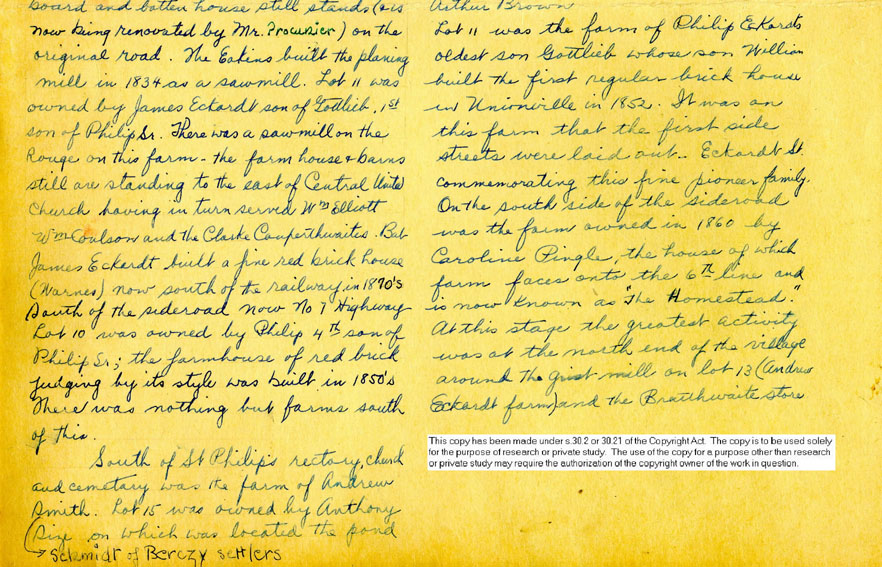 board and batten house still stands (& is
now being renovated by Mr. Procunier) on the
original road. The Eakins built the planing
mill in 1834 as a sawmill. Lot 11 was
owned by James Eckardt son of Gotlieb, 1st
son of Philip Sr. There was a sawmill on the
Rouge on this farm - the farm house & barns
still are standing to the east of Central United
Church having in turn served Wm Elliott
Wm Coulson and the Clarke Couperthwaites. But
James Eckardt built a fine red brick house
(Warnes) now south of the railway in 1870's
South of the sideroad now No 7 Highway
Lot 10 was owned by Philip 4th son of
Philip Sr; the farmhouse of red brick
judging by its style was built in 1850's
There was nothing but farms south
of this.
South of St Philip's rectory, church
and cemetary was the farm of Andrew
Smith. Lot 15 was owned by Anthony
(Size on which was located the pond
→ Schmidt of Berczy settlers
Arthur Brown
Lot 11 was the farm of Philip Eckardt's
oldest son Gottlieb whose son William
built the first regular brick house
in Unionville in 1852. It was on
this farm that the first side
streets were laid out. Eckardt St.
commemorating this fine pioneer family.
On the south side of the sideroad
was the farm owned in 1860 by
Caroline Pingle, the house of which
farm faces onto the 6th line and
is now known as "The Homestead."
At this stage the greatest activity
was at the north end of the village
around the grist mill on lot 13 (Andrew
Eckardt farm) and the Braithwaite store
This copy has been made under s.30.2 or 30.21 of the Copyright Act. The copy is to be used solely
for the purpose of research or private study. The use of the copy for a purpose other than research
or private study may require the authorization of the copyright owner of the work in question.